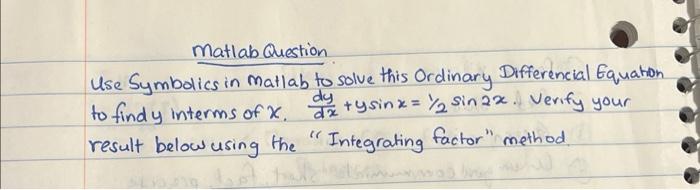 Matlab Question
Use Symbolics in matlab to solve this Ordinary Differencial Equation
to find y interms of x. dy/dx + y sin x = 1/2 sin 2x. Verify your
result below using the "Integrating factor" method.